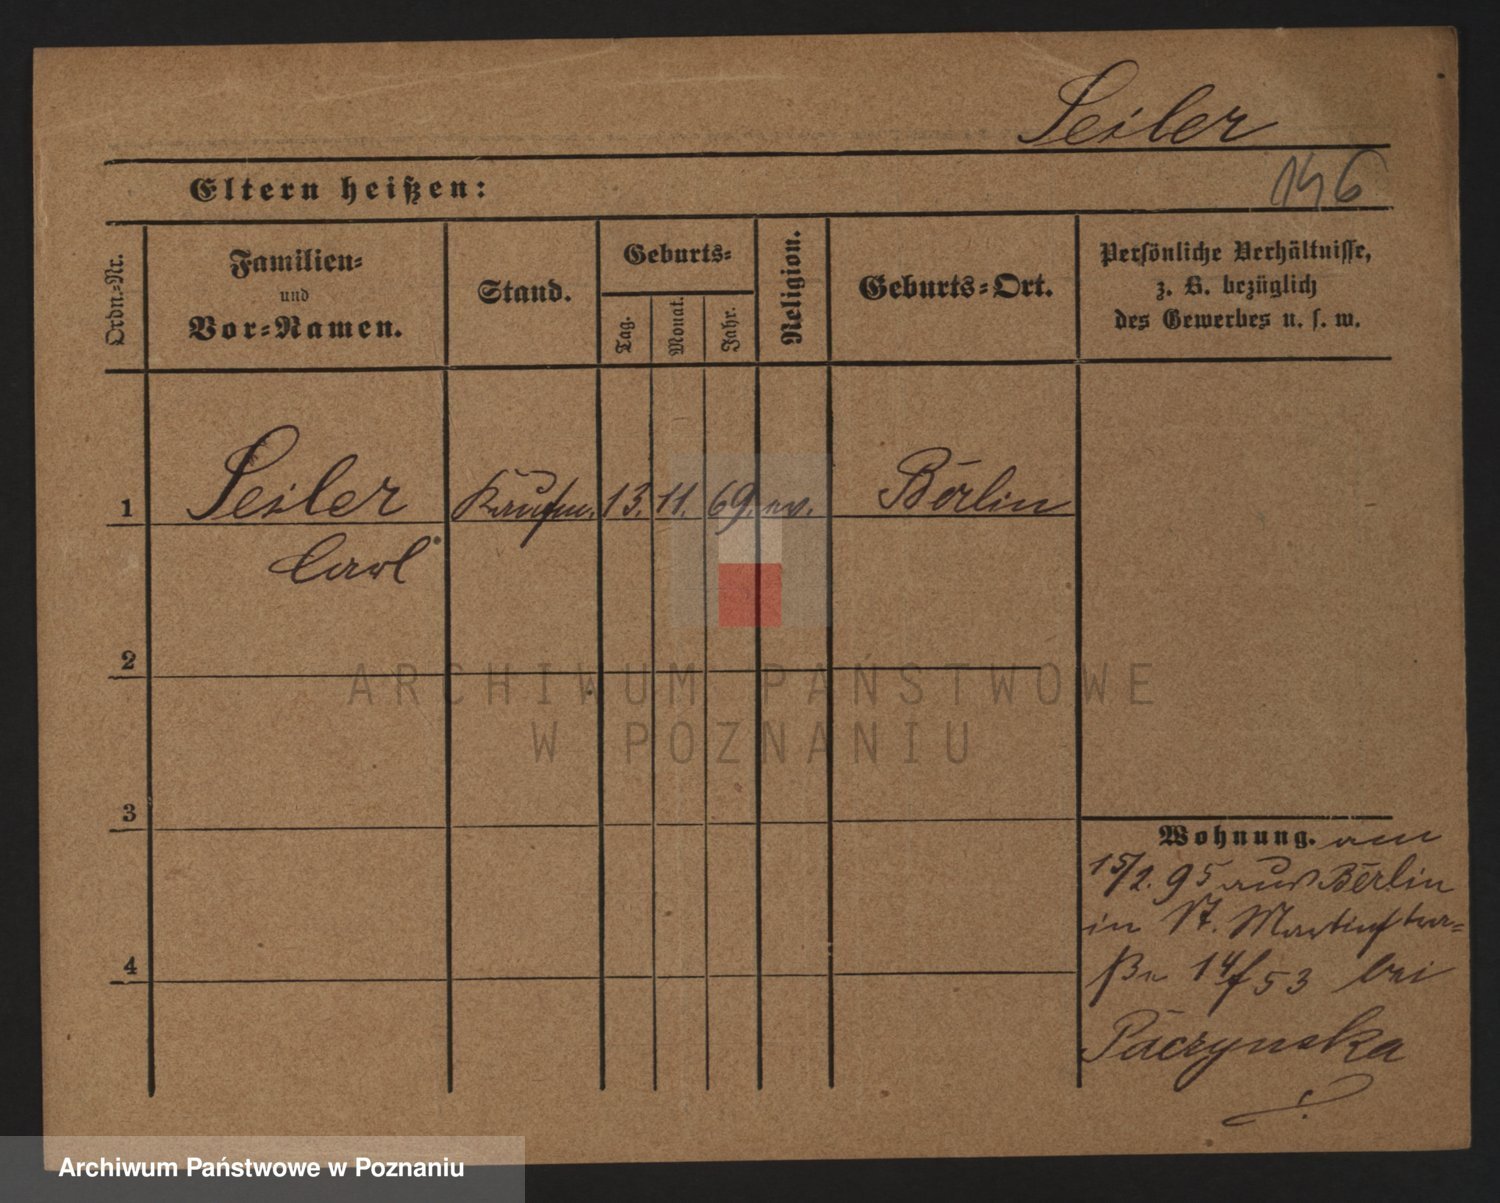 Seiler
146
Eltern heißen:
Ordn.-Nr.
Familien-
und
Vor-Namen.
Stand.
Geburts-
Tag.
Monat.
Jahr.
Religion.
Geburts-Ort.
Persönliche Verhältnisse,
z. B. bezüglich
des Gewerbes u. s. w.
1 Seiler Kaufm. 13. 11. 69. ev. Berlin
Carl
2
3
4
Wohnung. am
15/2. 95 aus Berlin
in St. Martinstra-
ße 53 bei
Paczynska
ARCHIWUM PAŃSTWOWE
W POZNANIU
Archiwum Państwowe w Poznaniu